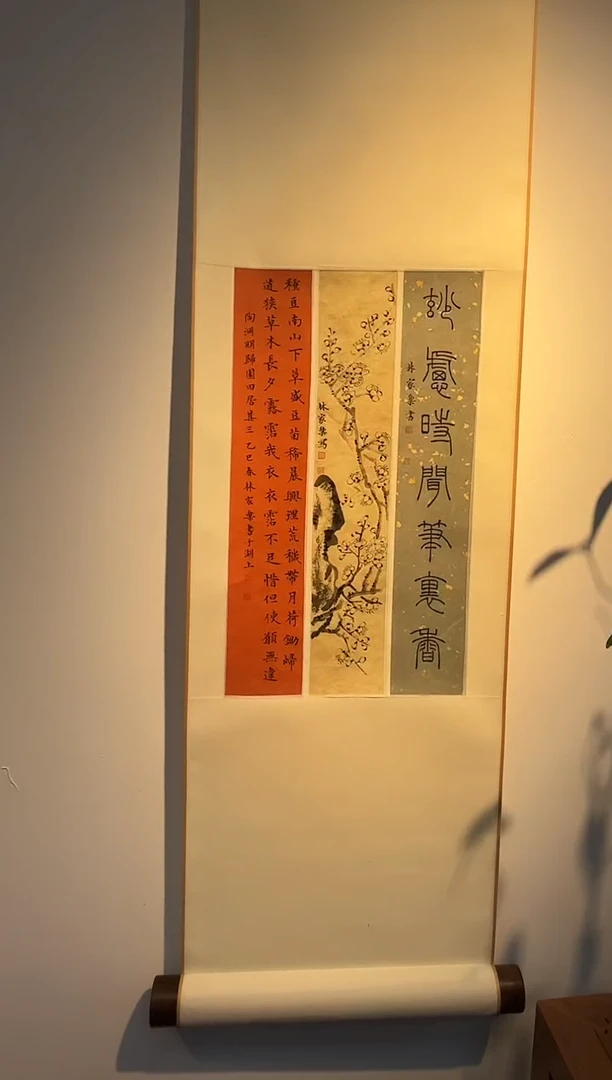 玅處時聞筆裏香
林家樂書
林家樂寫
種豆南山下草盛豆苗稀晨興理荒穢帶月荷鋤歸
道狹草木長夕露霑我衣衣霑不足惜但使願無違
陶淵明歸園田居其三乙巳春林家樂書于湖上